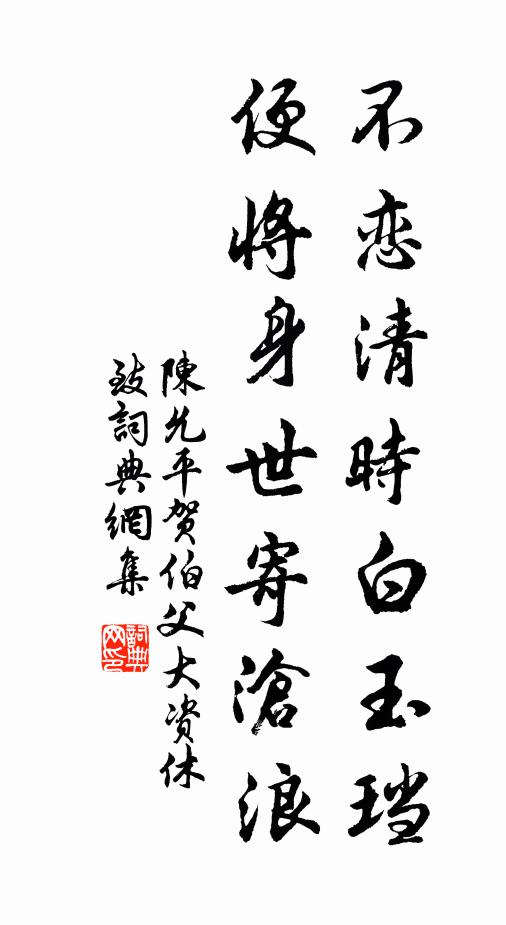 不恋清時白玉珰
便將身世寄滄浪
陳允平贺伯父大資休
致詞典網集
詞典网印